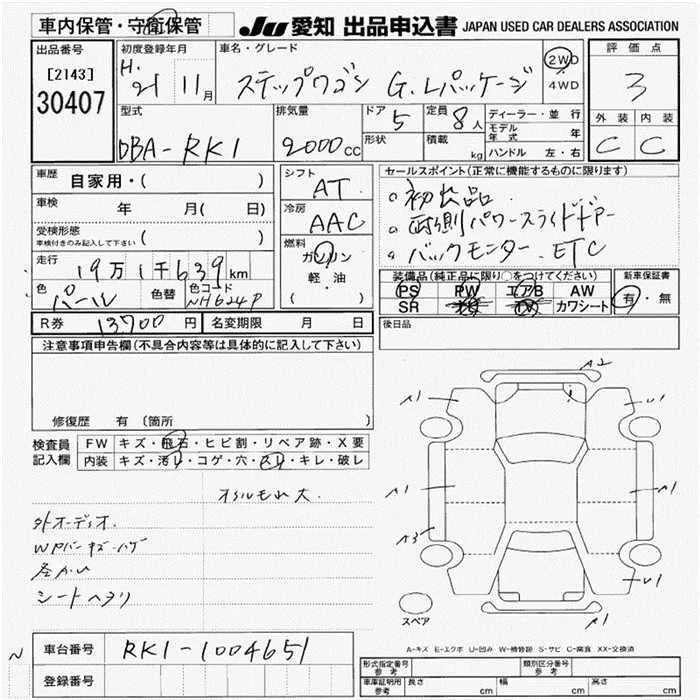 車内保管・守衛保管
JU 愛知 出品申込書 JAPAN USED CAR DEALERS ASSOCIATION
出品番号
[2143]
30407
初度登録年月
H. 21 11月
車名・グレード
ステップワゴン G.Lパッケージ
2WD
4WD
評価点
3
外装 内装
C C
型式
DBA-RK1
排気量
2000cc
ドア 5
形状
定員 8人
積載 kg
ディーラー・並行
モデル年式 年
ハンドル 左・右
車歴 自家用・( )
車検 年 月( 日)
受検形態
車検付きのみ記入して下さい ( )
走行 19万1千639km
色 パール 色替 色コード NH624P
シフト
AT
冷房
AAC
燃料
ガソリン
軽・油
( )
セールスポイント(正常に機能するものに限ります)
。初出品
。両側パワースライドドアー
。バックモニター. ETC
装備品(純正品に限り○をつけてください)
PS PW エアB AW
SR カワシート
新車保証書
有・無
R券 13700円 名変期限 月 日
後日品
注意事項申告欄(不具合内容等は具体的に記入して下さい)
修復歴 有 (箇所 )
検査員記入欄
FW キズ・飛石・ヒビ割・リペア跡・X要
内装 キズ・汚れ・コゲ・穴・スレ・キレ・破レ
オイルもれ大.
外オーディオ.
シートヘタリ
A2
A1 U1
A1 A1
A3
U1
A1
スペア
A-キズ E-エクボ U-凹み W-補修跡 S-サビ C-腐食 XX-交換済
N
車台番号 RK1-1004651
登録番号
形式指定番号 参考
類別区分番号 参考
車庫証明用 参考 長さ cm 幅 cm 高さ cm